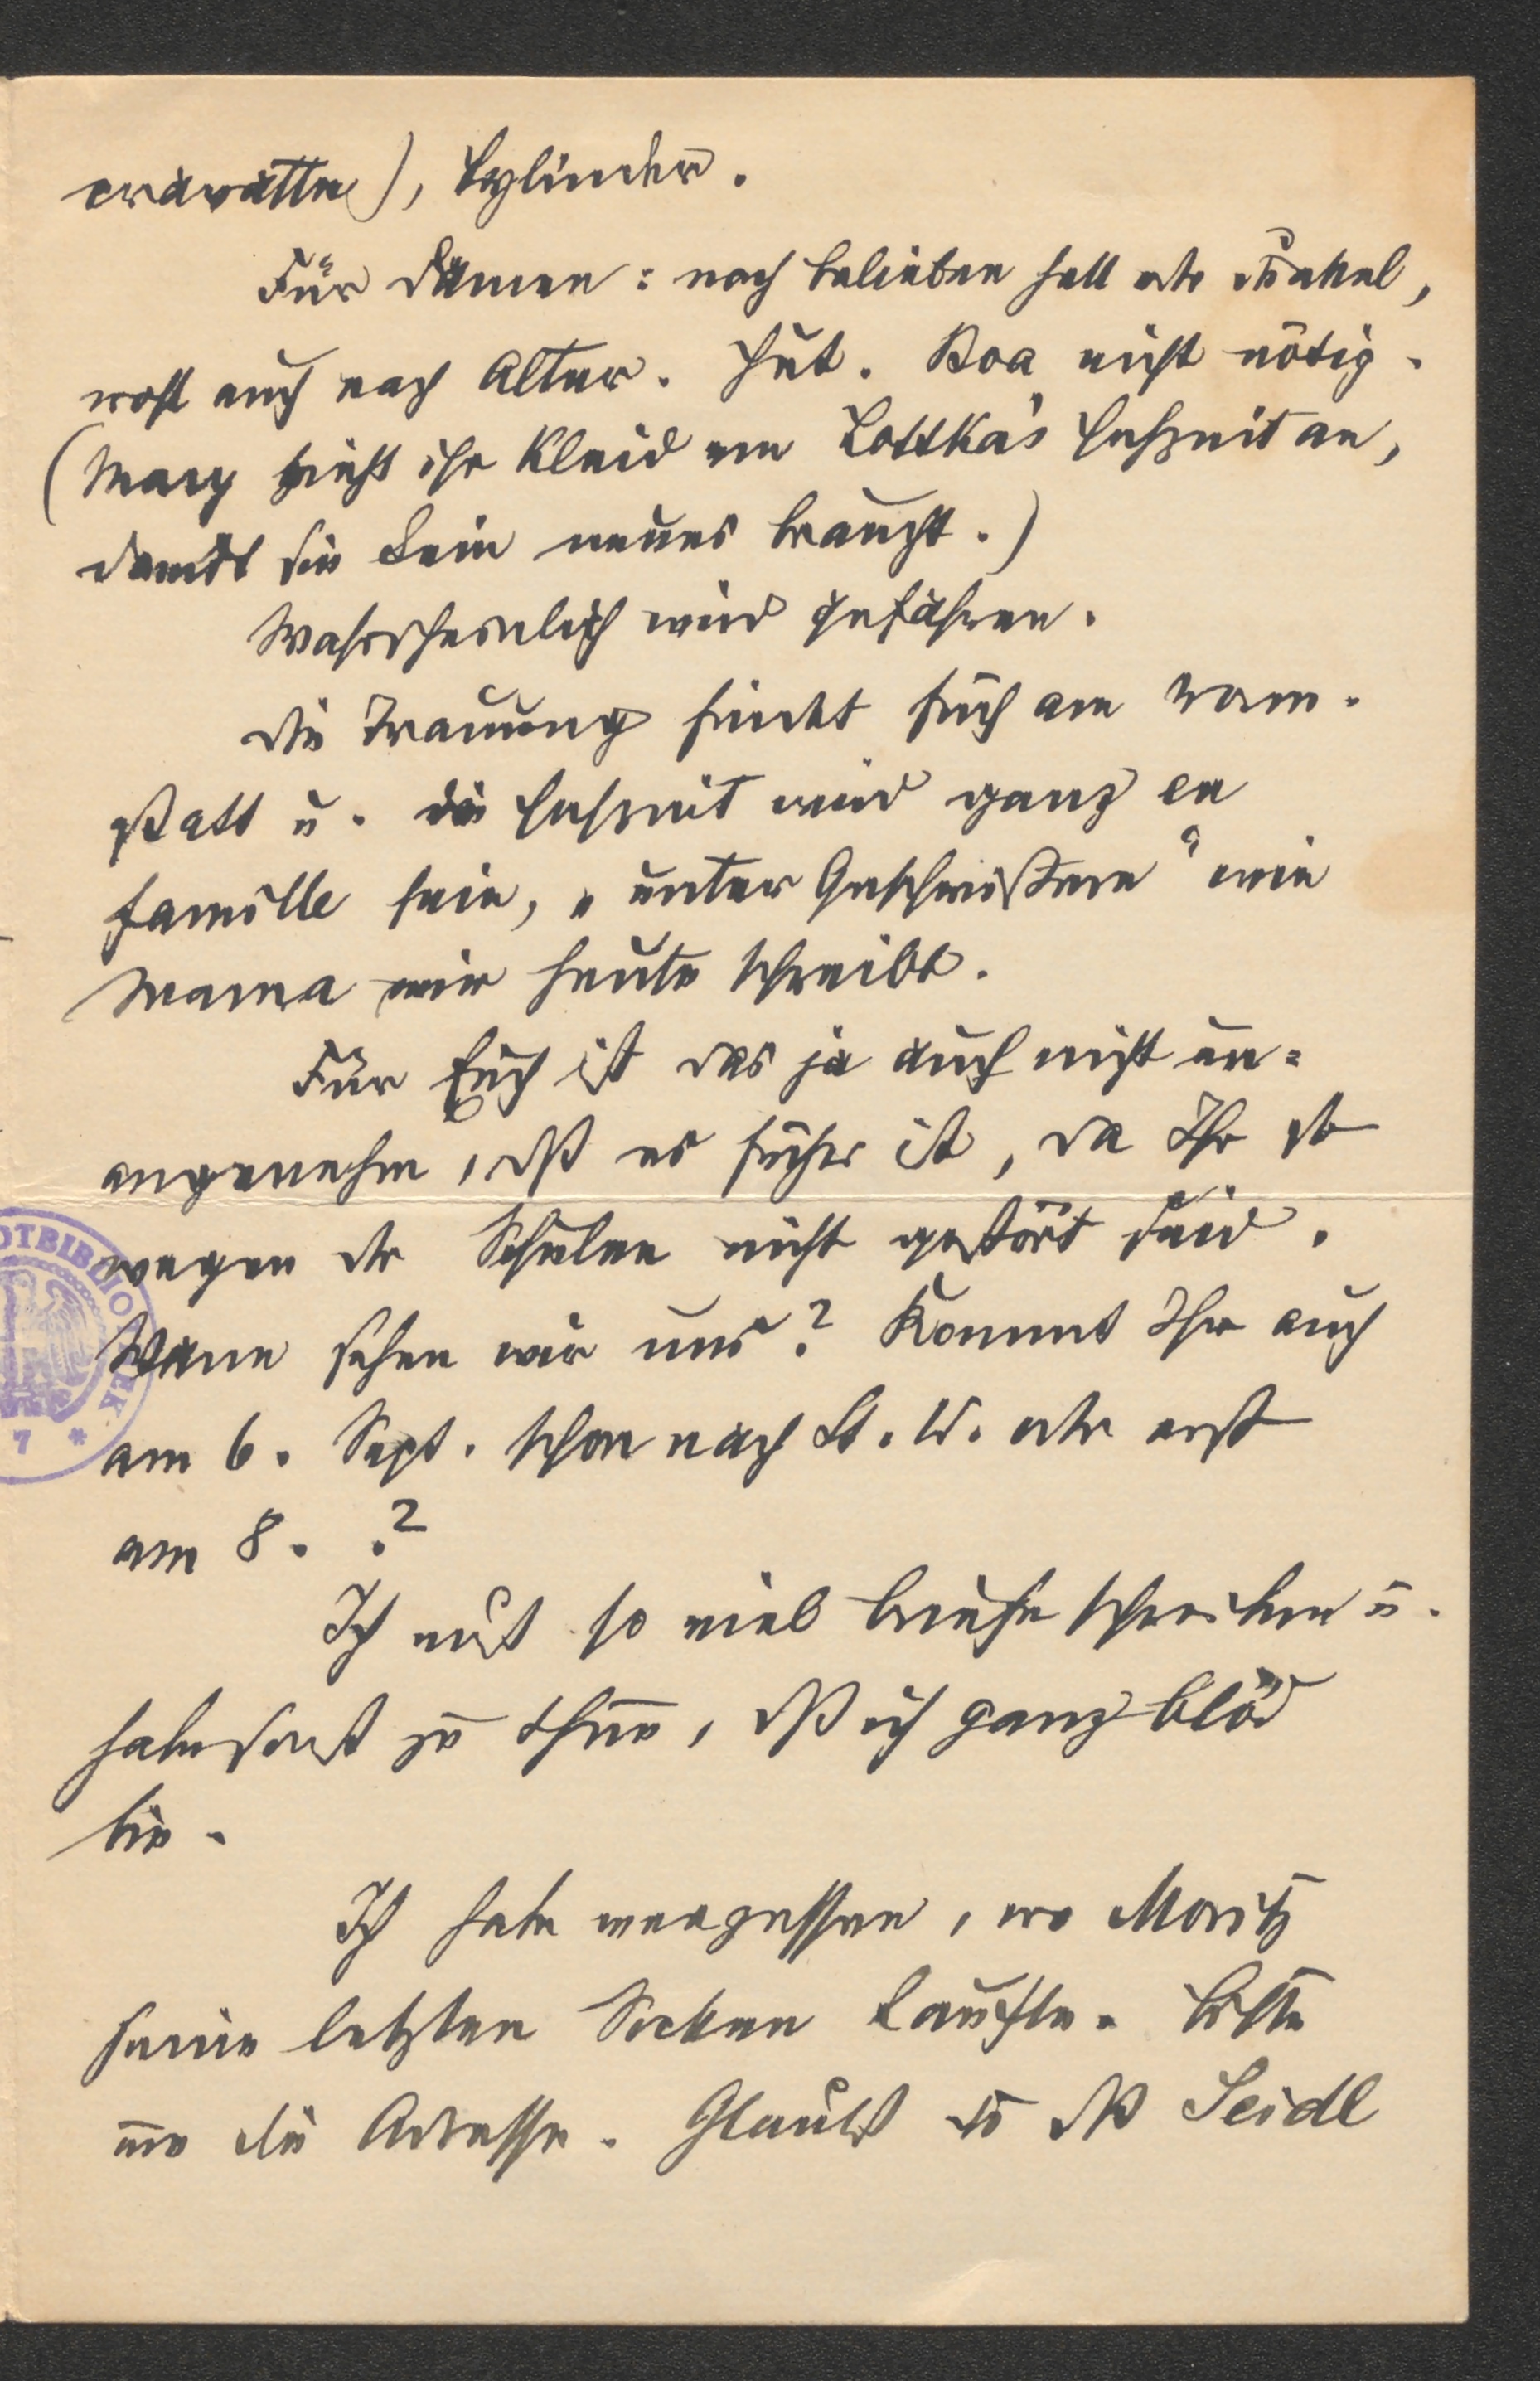 cravatte), Cylinder.
Für Damen: nach belieben hell oder dunkel,
wohl auch nach Alter. Hut. Boa nicht nötig.
(Mary zieht ihr Kleid von Lottka's Hochzeit an,
damit sie kein neues braucht.)
Wahrscheinlich wird gefahren.
Die Trauung findet früh am Vorm.
statt u. die Hochzeit wird ganz en
famille sein, „unter Geschwistern" wie
Mama mir heute schreibt.
Für Euch ist das ja auch nicht un=
angenehm, daß es früher ist, da Ihr so
wegen der Schulen nicht gestört seid.
Wann sehen wir uns? Kommt Ihr auch
am 6. Sept. schon nach St. W. oder erst
am 8. .?
Ich muß so viel Briefe schreiben u.
habe sonst zu thun, daß ich ganz blöd
bin.
Ich habe vergessen, wo Moritz
seine letzten Socken kaufte. Bitte
um die Adresse. Glaubst du daß Seidl
OTBIBLIO
EK
7 *